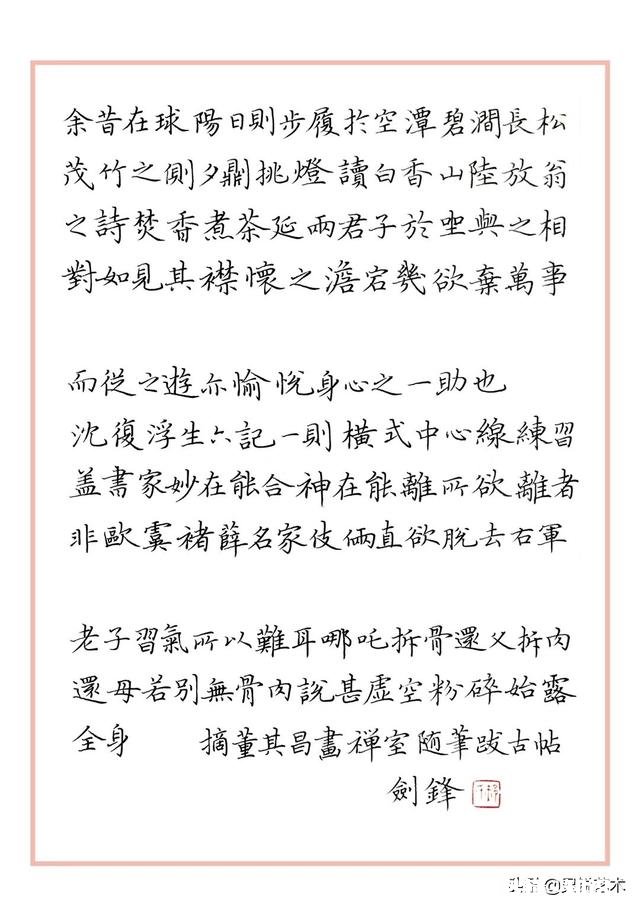 余昔在球陽日則步履於空潭碧澗長松
茂竹之側夕則挑燈讀白香山陸放翁
之詩焚香煮茶延兩君子於坐與之相
對如見其襟懷之澹宕幾欲棄萬事
而從之遊亦愉悅身心之一助也
沈復浮生六記一則橫式中心線練習
盖書家妙在能合神在能離所欲離者
非歐虞褚薛名家伎倆直欲脫去右軍
老子習氣所以難耳哪吒拆骨還父拆肉
還母若別無骨肉說甚虛空粉碎始露
全身 摘董其昌畫禅室随筆跋古帖
劍鋒